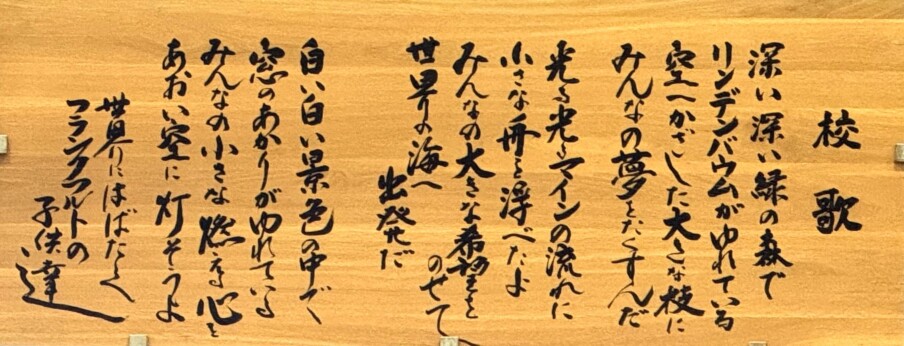 校歌
深い深い緑の森で
リンデンバウムがゆれている
空へかざした大きな枝に
みんなの夢をたくすんだ
光る光るマインの流れに
小さな舟を浮べたよ
みんなの大きな希望を
のせて
世界の海へ
出発だ
白い白い景色の中で
窓のあかりがゆれている
みんなの小さな燃える心を
あおい空に灯そうよ
世界にはばたくへ
フランクフルトの
子供達